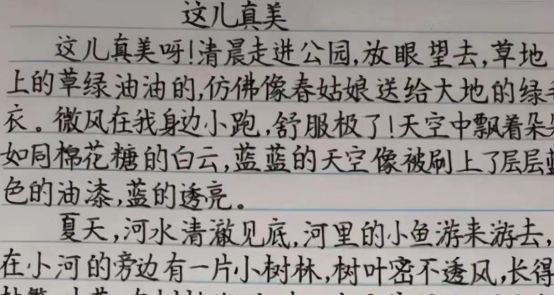 这儿真美
这儿真美呀!清晨走进公园,放眼望去,草地
上的草绿油油的,仿佛像春姑娘送给大地的绿
衣。微风在我身边小跑,舒服极了!天空中飘着朵
如同棉花糖的白云,蓝蓝的天空像被刷上了层层
色的油漆,蓝的透亮。
夏天,河水清澈见底,河里的小鱼游来游去,
在小河的旁边有一片小树林,树叶密不透风,长得